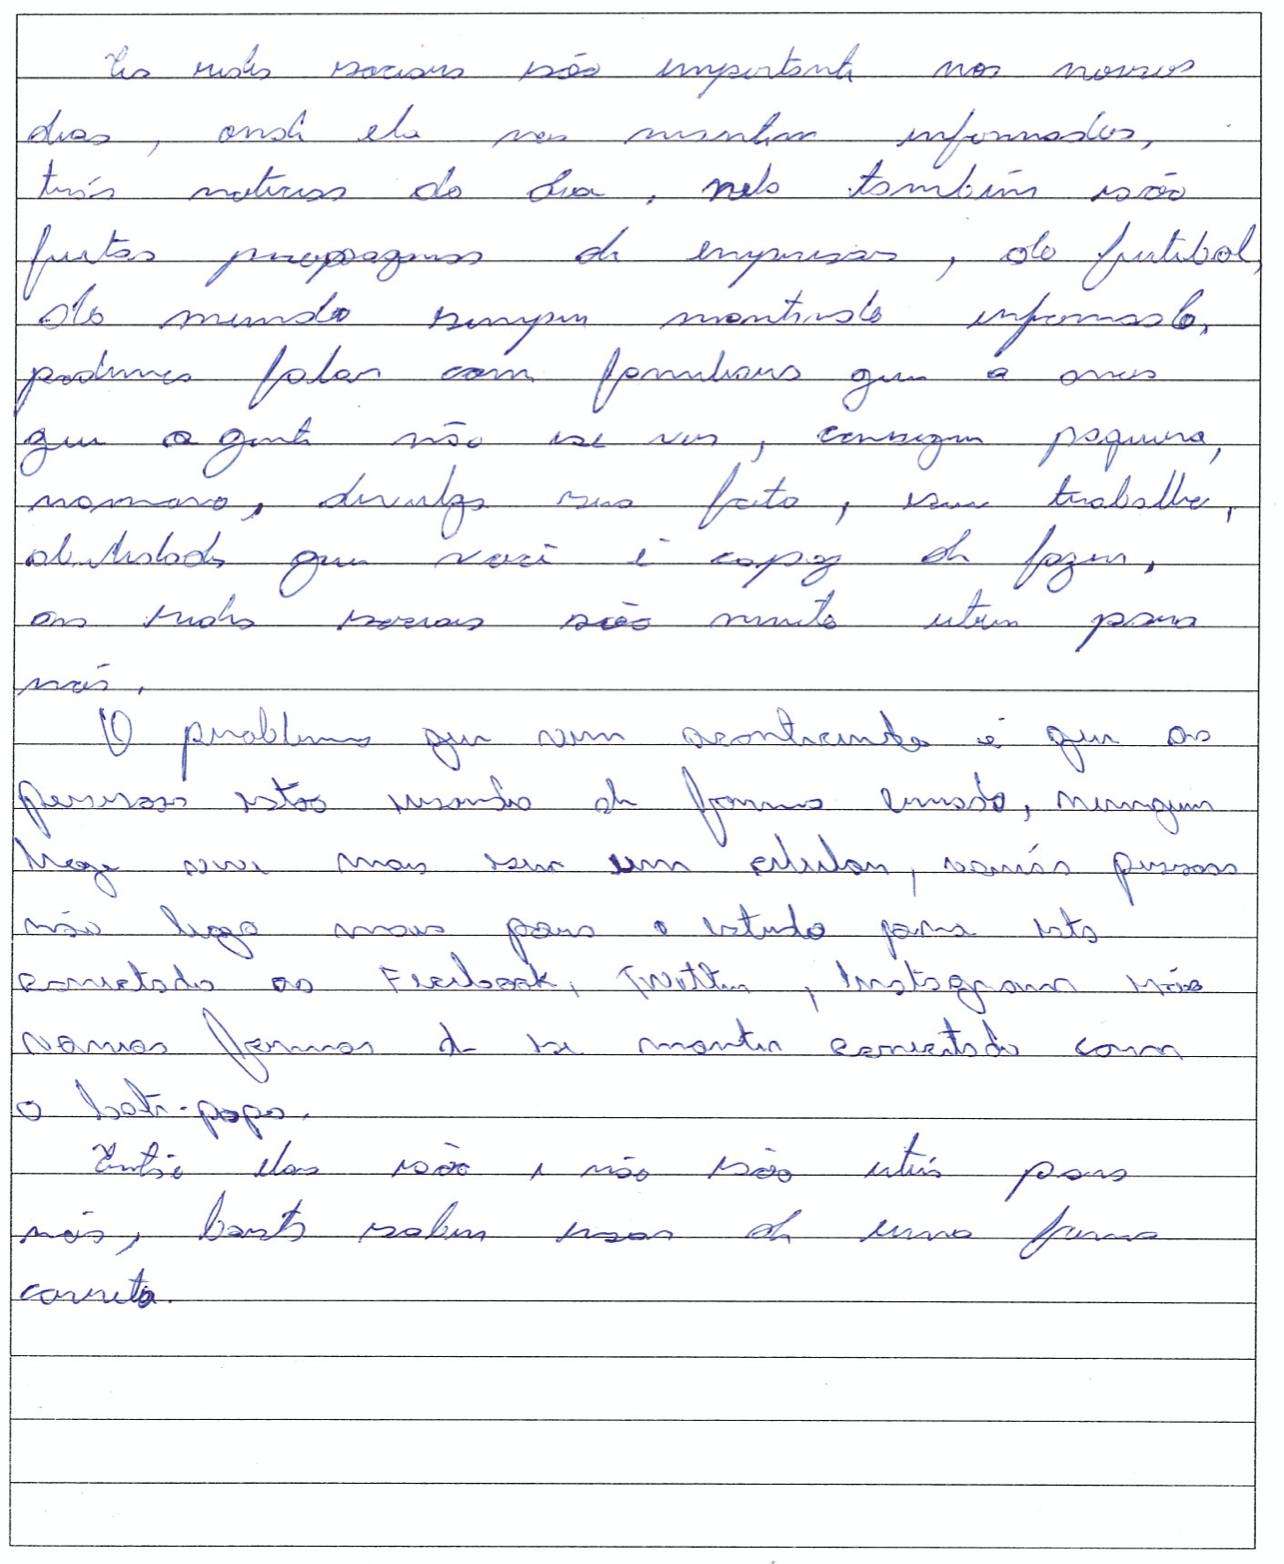 As redes sociais são importante nos nossos
dias, onde ela nos mantem informados,
trás noticias do dia, nela também são
feitas propagandas de empresas, do futibol,
do mundo sempre mantendo informado,
podemos falar com familiares que a anos
que a gente não se ver, consegue pesquisa,
namoro, divulga sua foto, seu trabalho,
abilidade que você é capaz de fazer,
as redes sociais são muito uteis para
nós.
O problema que vem acontecendo é que as
pessoas estão usando de forma errada, ninguem
hoje vive mais sem um celular, varias pessoas
não liga mais para o estudo para esta
conectado ao Facebook, Twitter, Instagram são
varias formas de se manter conectado com
o bate-papo.
Então elas são e não são uteis para
nós, basta saber usar de uma forma
correta.